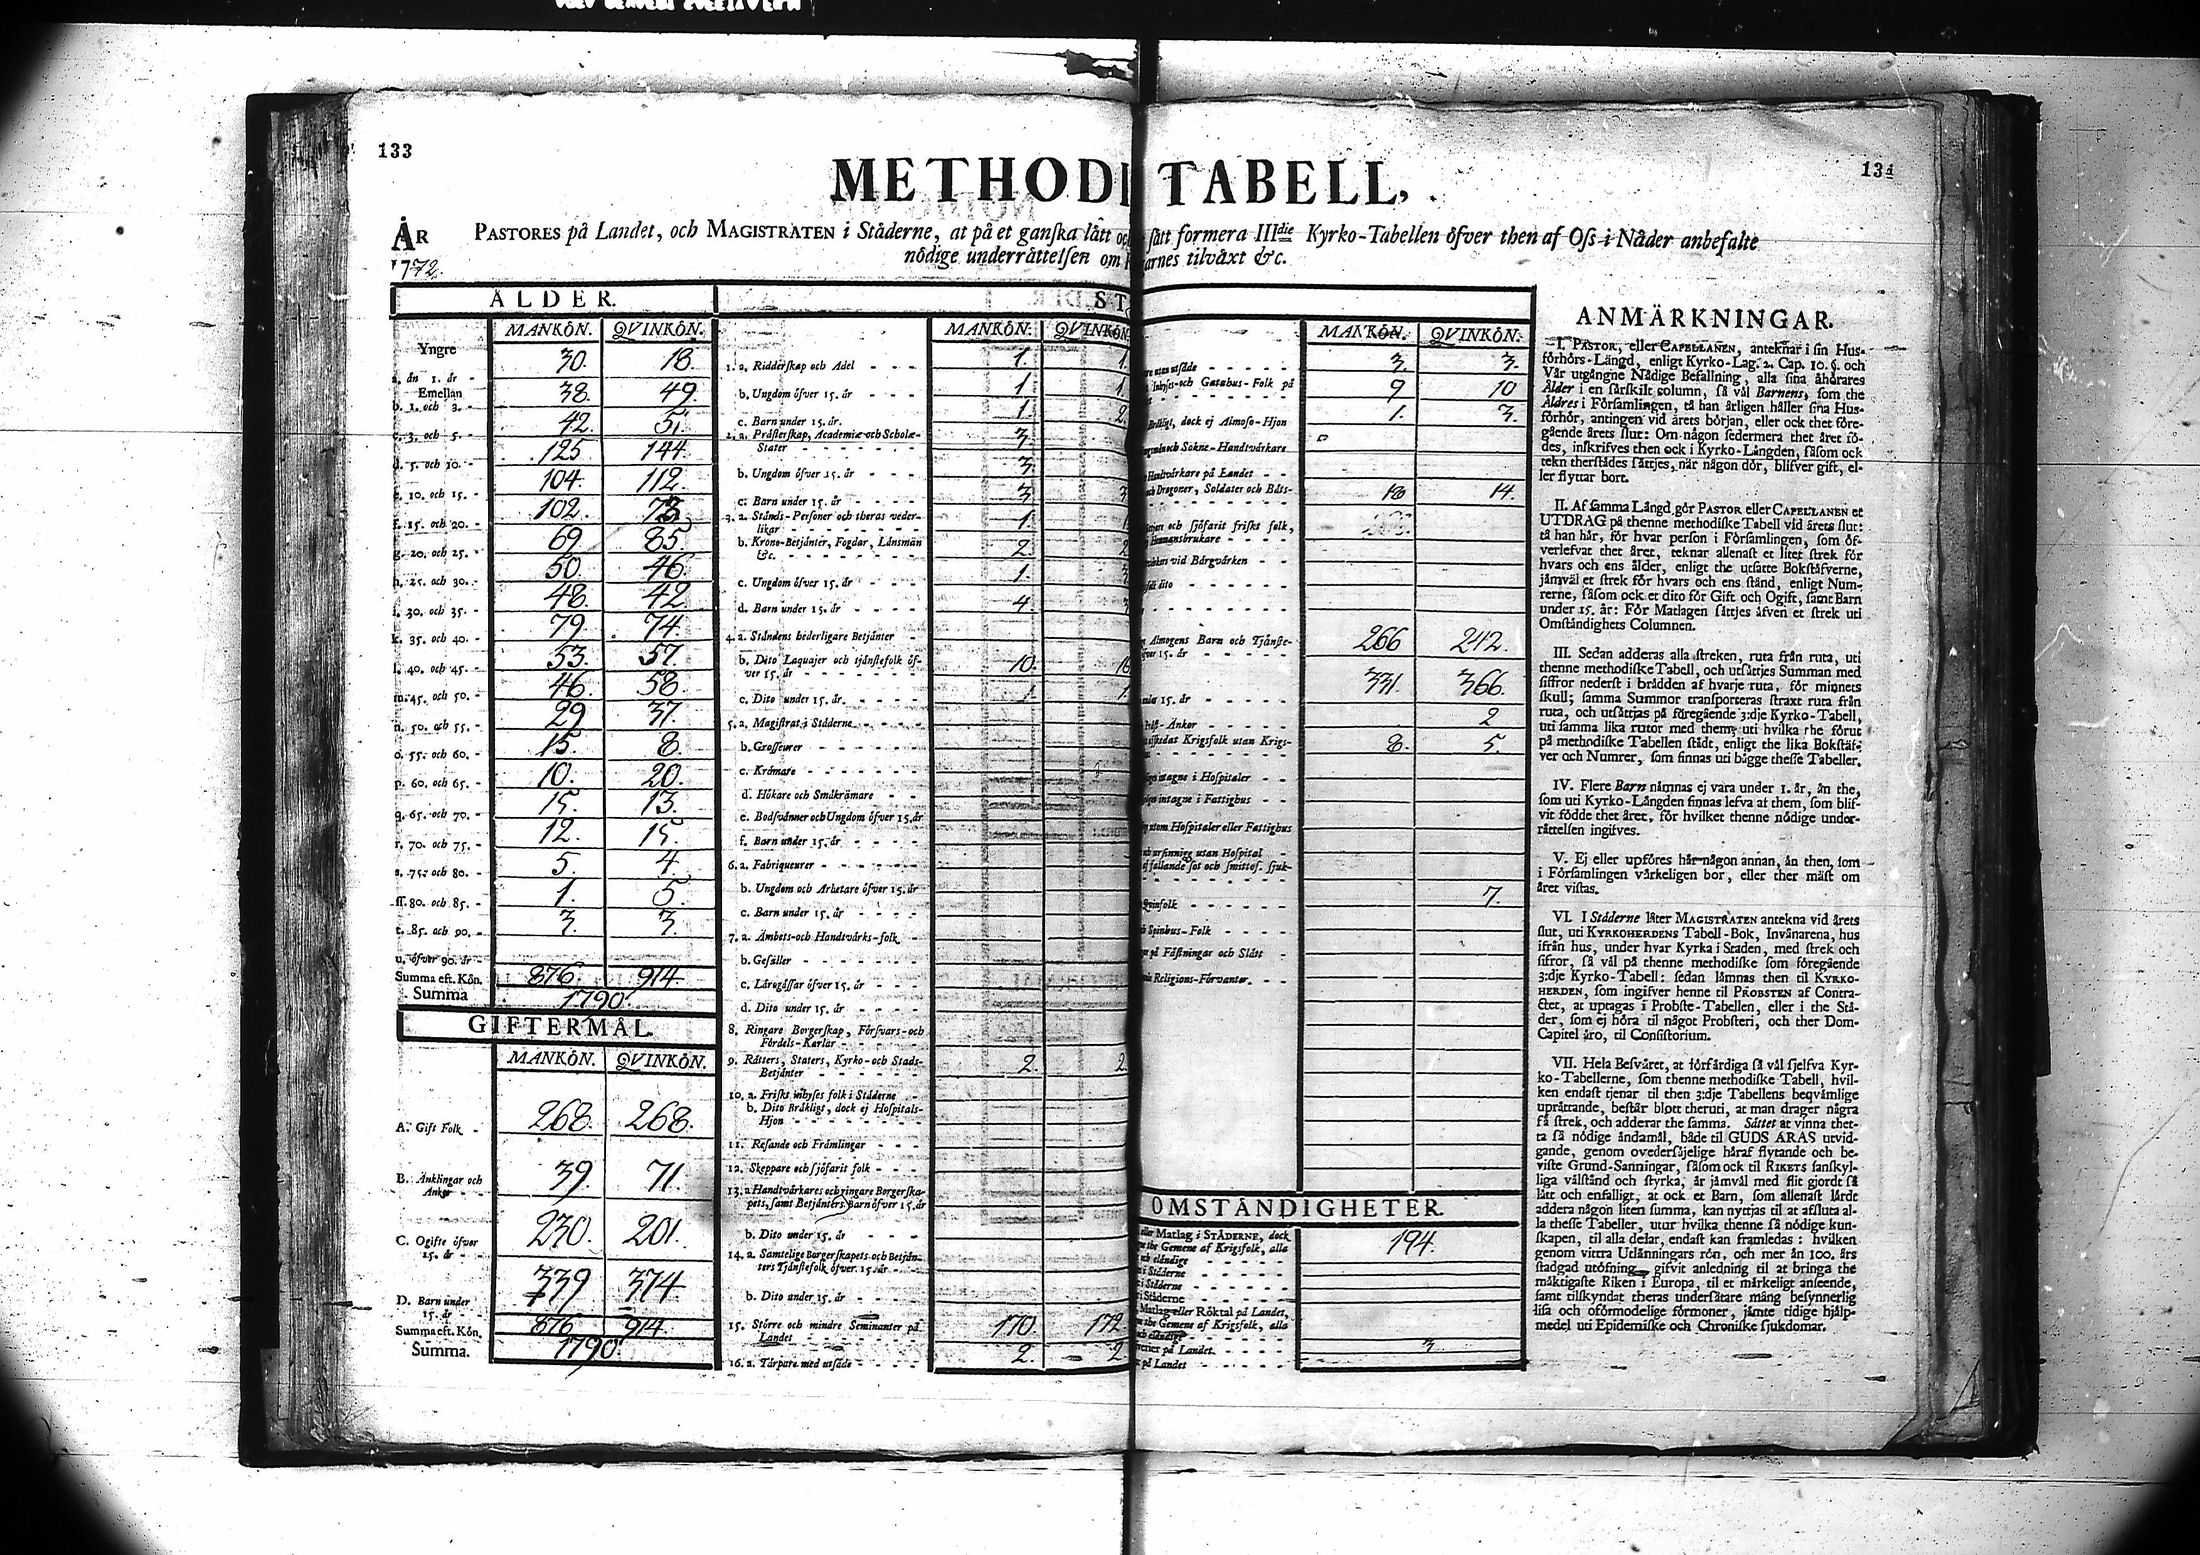 133
134
METHODI TABELL,
ÅR
1772.
PASTORES på Landet, och MAGISTRATEN i Städerne, at på et ganska lätt och sätt formera IIIdie Kyrko-Tabellen öfver then af Oss i Nåder anbefalte
nödige underrättelsen om arnes tilväxt &c.
ÅLDER.
MANKÖN. QVINKÖN.
Yngre
a. än 1. år - 30. 18.
Emellan
b. 1. och 3. - 38. 49.
c. 3. och 5. - 42. 51.
d. 5. och 10. - 125. 144.
e. 10. och 15. - 104. 112.
f. 15. och 20. - 102. 73.
g. 20. och 25. - 69. 85.
h. 25. och 30. - 50. 46.
i. 30. och 35. - 48. 42.
k. 35. och 40. - 79. 74.
l. 40. och 45. - 53. 57.
m. 45. och 50. - 46. 58.
n. 50. och 55. - 29. 37.
o. 55. och 60. - 15. 8.
p. 60. och 65. - 10. 20.
q. 65. och 70. - 15. 13.
r. 70. och 75. - 12. 15.
s. 75. och 80. - 5. 4.
ss. 80. och 85. - 1. 5.
t. 85. och 90. - 3. 3.
u. öfver 90. år -
Summa eft. Kön. 876. 914.
Summa 1790.
GIFTERMÅL.
MANKÖN. QVINKÖN.
A. Gift Folk - 268. 268.
B. Änklingar och
Ankor - 39. 71.
C. Ogifte öfver
15. år - 230. 201.
D. Barn under
15. år 339 374
Summa eft. Kön. 876 914.
Summa. 1790.
ST
MANKÖN. QVINKÖN
1. a. Ridderskap och Adel - - - 1. 1.
b. Ungdom öfver 15. år - - - 1. 1.
c. Barn under 15. år. 1. 2.
2. a. Prästerskap, Academiæ och Scholæ-
Stater - - - 3.
b. Ungdom öfver 15. år - - - 3.
c. Barn under 15. år - - - 3. 3
3. a. Stånds-Personer och theras veder-
likar - - - 1. 1.
b. Krono-Betjänter, Fogdar, Länsmän
&c. - - - 2. 2
c. Ungdom öfver 15. år - - - 1.
d. Barn under 15. år - - - 4
4. a. Ståndens hederligare Betjänter -
b. Dito Laquajer och tjänstefolk öf-
ver 15. år - - - 10. 16
c. Dito under 15. år - - - 1. 1.
5. a. Magistrat i Städerne - - -
b. Grosseurer - - -
c. Krämare - - -
d. Hökare och Småkrämare - - -
e. Bodsvänner och Ungdom öfver 15. år
f. Barn under 15. år - - -
6. a. Fabriqueurer - - -
b. Ungdom och Arbetare öfver 15. år
c. Barn under 15. år - - -
7. a. Ämbets- och Handtvärks-folk -
b. Gesäller - - -
c. Lärogåssar öfver 15. år - - -
d. Dito under 15. år - - -
8. Ringare Borgerskap, Försvars- och
Fördels-Karlar - - -
9. Rätters, Staters, Kyrko- och Stads-
Betjänter - - - 2. 2.
10. a. Friskt inhyses folk i Städerne -
b. Dito Bräkligt, dock ej Hospitals-
Hjon - - -
11. Resande och Främlingar - - -
12. Skeppare och sjöfarit folk - - -
13. a. Handtvärkares och ringare Borgerska-
pets, samt Betjänters Barn öfver 15. år
b. Dito under 15. år - - -
14. a. Samtelige Borgerskapets och Betjän-
ters Tjänstefolk öfver 15. år - - -
b. Dito under 15. år - - -
15. Större och mindre Seminanter på
Landet - - - 170. 172.
16. a. Torpare med utsäde - - - 2. 2.
MANKÖN. QVINKÖN.
utan utsäde - - - 3. 3.
Inhyses- och Gatuhus-Folk på 9 10
Bräkligt, dock ej Almoso-Hjon 1. 3.
och Sokne-Handtvärkare
Handtvärkare på Landet - -
och Dragoner, Soldater och Båts- 18 14.
och sjöfarit friskt folk,
Hemmansbrukare - -
vid Bärgvärken - -
dito
Almogens Barn och Tjänste-
öfver 15. år - - - 266 242.
under 15. år - - - 331. 366.
Präst-Ankor - - - 2
afskedat Krigsfolk utan Krigs- 8. 5.
intagne i Hospitaler - -
intagne i Fattighus - -
utom Hospitaler eller Fattighus
utan Hospital -
fallande sot och smittos. sjuk-
Qvinfolk - - - 7.
Spinhus-Folk - - -
på Fästningar och Slått -
Religions-Förvanter. - - -
OMSTÄNDIGHETER.
eller Matlag i STÄDERNE, dock 194.
the Gemene af Krigsfolk, alla
och eländige - - -
i Städerne - - -
i Städerne - - -
i Städerne - - -
Matlag eller Röktal på Landet,
the Gemene af Krigsfolk, alla
och eländige - - -
på Landet. - - - 3.
på Landet - - -
ANMÄRKNINGAR.
I. PASTOR, eller CAPELLANEN, anteknar i sin Hus-
förhörs-Längd, enligt Kyrko-Lag. 2. Cap. 10. §. och
Vår utgångne Nådige Befallning, alla sina åhörares
Ålder i en särskilt column, så väl Barnens, som the
Äldres i Församlingen, tå han årligen håller sina Hus-
förhör, antingen vid årets början, eller ock thet före-
gående årets slut: Om någon sedermera thet året fö-
des, inskrifves then ock i Kyrko-Längden, såsom ock
tekn therstädes sättjes, när någon dör, blifver gift, el-
ler flyttar bort.
II. Af samma Längd gör PASTOR eller CAPELLANEN et
UTDRAG på thenne methodiske Tabell vid årets slut:
tå han här, för hvar person i Församlingen, som öf-
verlefvat thet året, teknar allenast et litet strek för
hvars och ens ålder, enligt the utsatte Bokstäfverne,
jämväl et strek för hvars och ens stånd, enligt Num-
rerne, såsom ock et dito för Gift och Ogift, samt Barn
under 15. år: För Matlagen sättjes äfven et strek uti
Omständighets Columnen.
III. Sedan adderas alla streken, ruta från ruta, uti
thenne methodiske Tabell, och utsättjes Summan med
siffror nederst i brädden af hvarje ruta, för minnets
skull; samma Summor transporteras straxt ruta från
ruta, och utsättjas på föregående 3:dje Kyrko-Tabell,
uti samma lika rutor med them, uti hvilka the förut
på methodiske Tabellen stådt, enligt the lika Bokstäf-
ver och Numrer, som finnas uti bägge thesse Tabeller.
IV. Flere Barn nämnas ej vara under 1. år, än the,
som uti Kyrko-Längden finnas lefva at them, som blif-
vit födde thet året, för hvilket thenne nödige under-
rättelsen ingifves.
V. Ej eller upföres här någon annan, än then, som
i Församlingen värkeligen bor, eller ther mäst om
året vistas.
VI. I Städerne låter MAGISTRATEN antekna vid årets
slut, uti KYRKOHERDENS Tabell-Bok, Invånarena, hus
ifrån hus, under hvar Kyrka i Staden, med strek och
sifror, så väl på thenne methodiske som föregående
3:dje Kyrko-Tabell: sedan lämnas then til KYRKO-
HERDEN, som ingifver henne til PROBSTEN af Contra-
ctet, at uptagas i Probste-Tabellen, eller i the Stä-
der, som ej höra til något Probsteri, och ther Dom-
Capitel äro, til Consistorium.
VII. Hela Besväret, at förfärdiga så väl sjelfva Kyr-
ko-Tabellerne, som thenne methodiske Tabell, hvil-
ken endast tjenar til then 3:dje Tabellens beqvämlige
uprättande, består blott theruti, at man drager några
få strek, och adderar the samma. Sättet at vinna thet-
ta så nödige ändamål, både til GUDS ÄRAS utvid-
gande, genom ovedersäjelige häraf flytande och be-
viste Grund-Sanningar, såsom ock til RIKETS sanskyl-
liga välstånd och styrka, är jämväl med flit gjordt så
lätt och enfalligt, at ock et Barn, som allenast lärdt
addera någon liten summa, kan nyttjas til at afsluta al-
la thesse Tabeller, utur hvilka thenne så nödige kun-
skapen, til alla delar, endast kan framledas: hvilken
genom vittra Utlänningars rön, och mer än 100. års
stadgad utöfning, gifvit anledning til at bringa the
mäktigaste Riken i Europa, til et märkeligt anseende,
samt tilskyndat theras undersåtare mång besynnerlig
lisa och oförmodelige förmoner, jämte tidige hjälp-
medel uti Epidemiske och Chroniske sjukdomar.